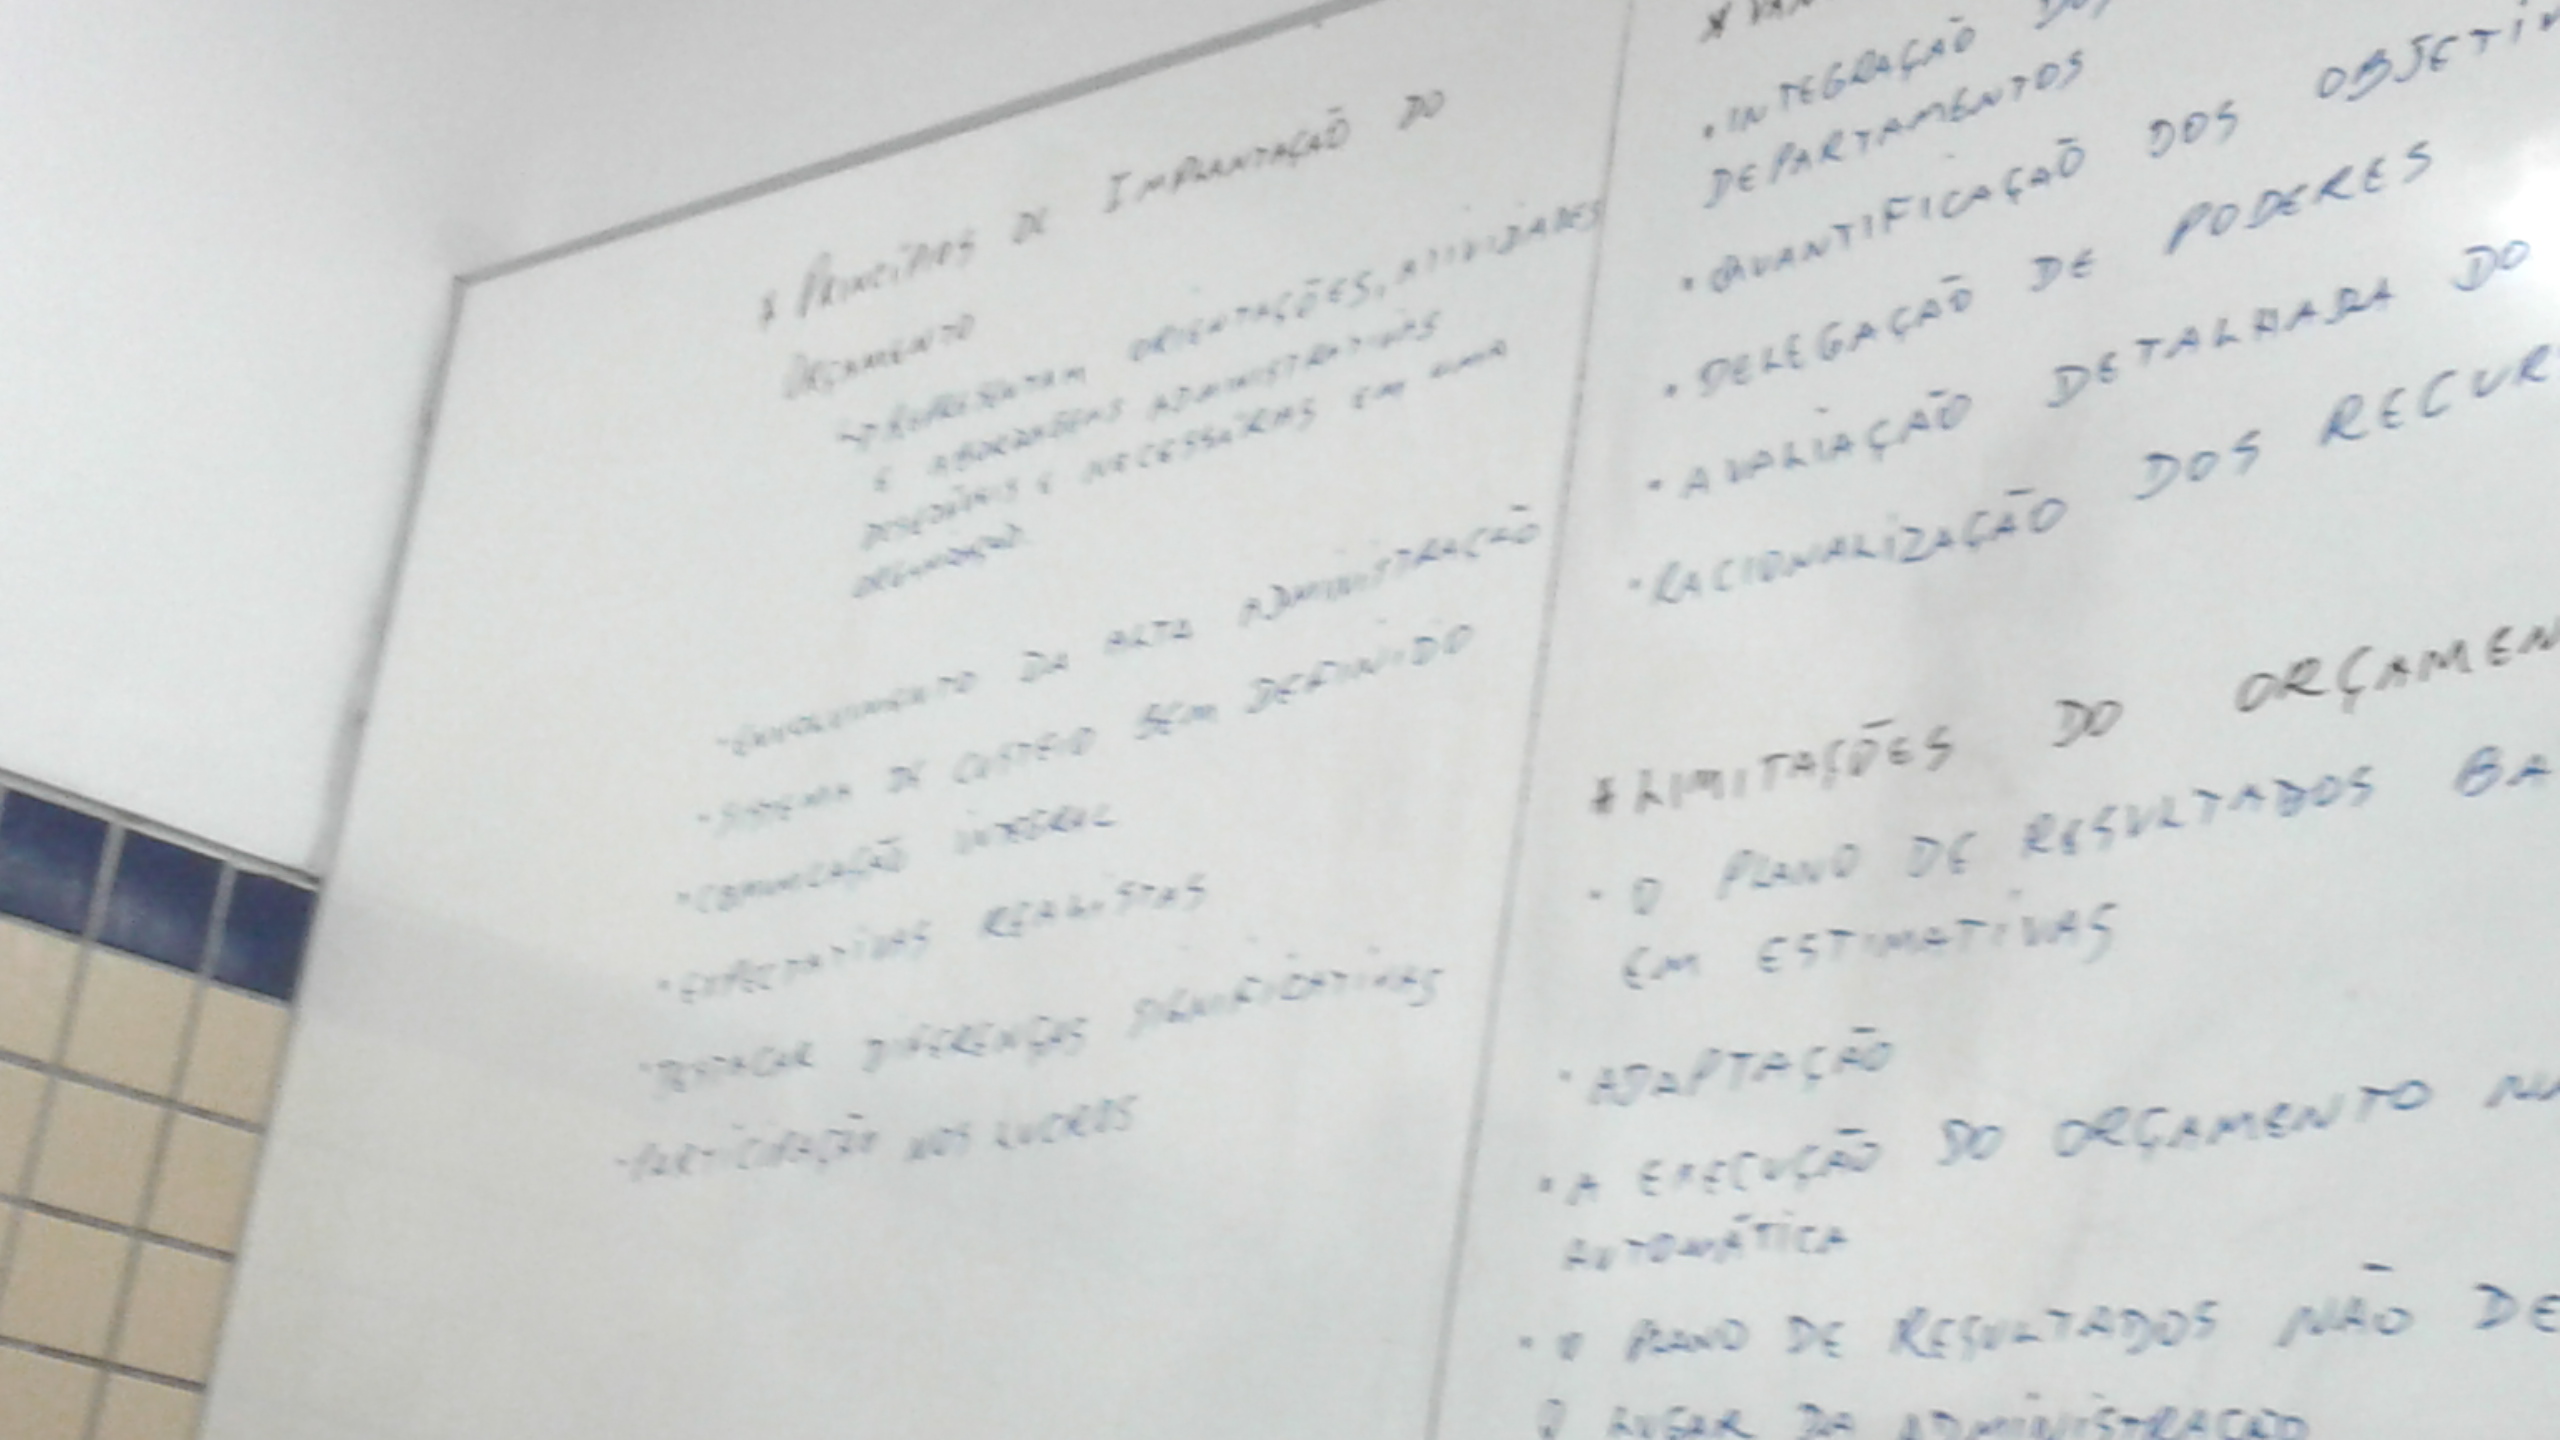 * PRINCÍPIOS DE IMPLANTAÇÃO DO
ORÇAMENTO
→ REPRESENTAM ORIENTAÇÕES, ATIVIDADES
E ABORDAGENS ADMINISTRATIVAS
DESEJÁVEIS E NECESSÁRIAS EM UMA
ORGANIZAÇÃO.
• ENVOLVIMENTO DA ALTA ADMINISTRAÇÃO
• SISTEMA DE CUSTEIO BEM DEFINIDO
• COMUNICAÇÃO INTEGRAL
• EXPECTATIVAS REALISTAS
• DESTACAR DIFERENÇAS SIGNIFICATIVAS
• PARTICIPAÇÃO NOS LUCROS
* VAN
• INTEGRAÇÃO DOS
DEPARTAMENTOS
• QUANTIFICAÇÃO DOS OBJETIV
• DELEGAÇÃO DE PODERES
• AVALIAÇÃO DETALHADA DO
• RACIONALIZAÇÃO DOS RECUR
* LIMITAÇÕES DO ORÇAMEN
• O PLANO DE RESULTADOS BA
EM ESTIMATIVAS
• ADAPTAÇÃO
• A EXECUÇÃO DO ORÇAMENTO NÃ
AUTOMÁTICA
• O PLANO DE RESULTADOS NÃO DE
O LUGAR DA ADMINISTRAÇÃO